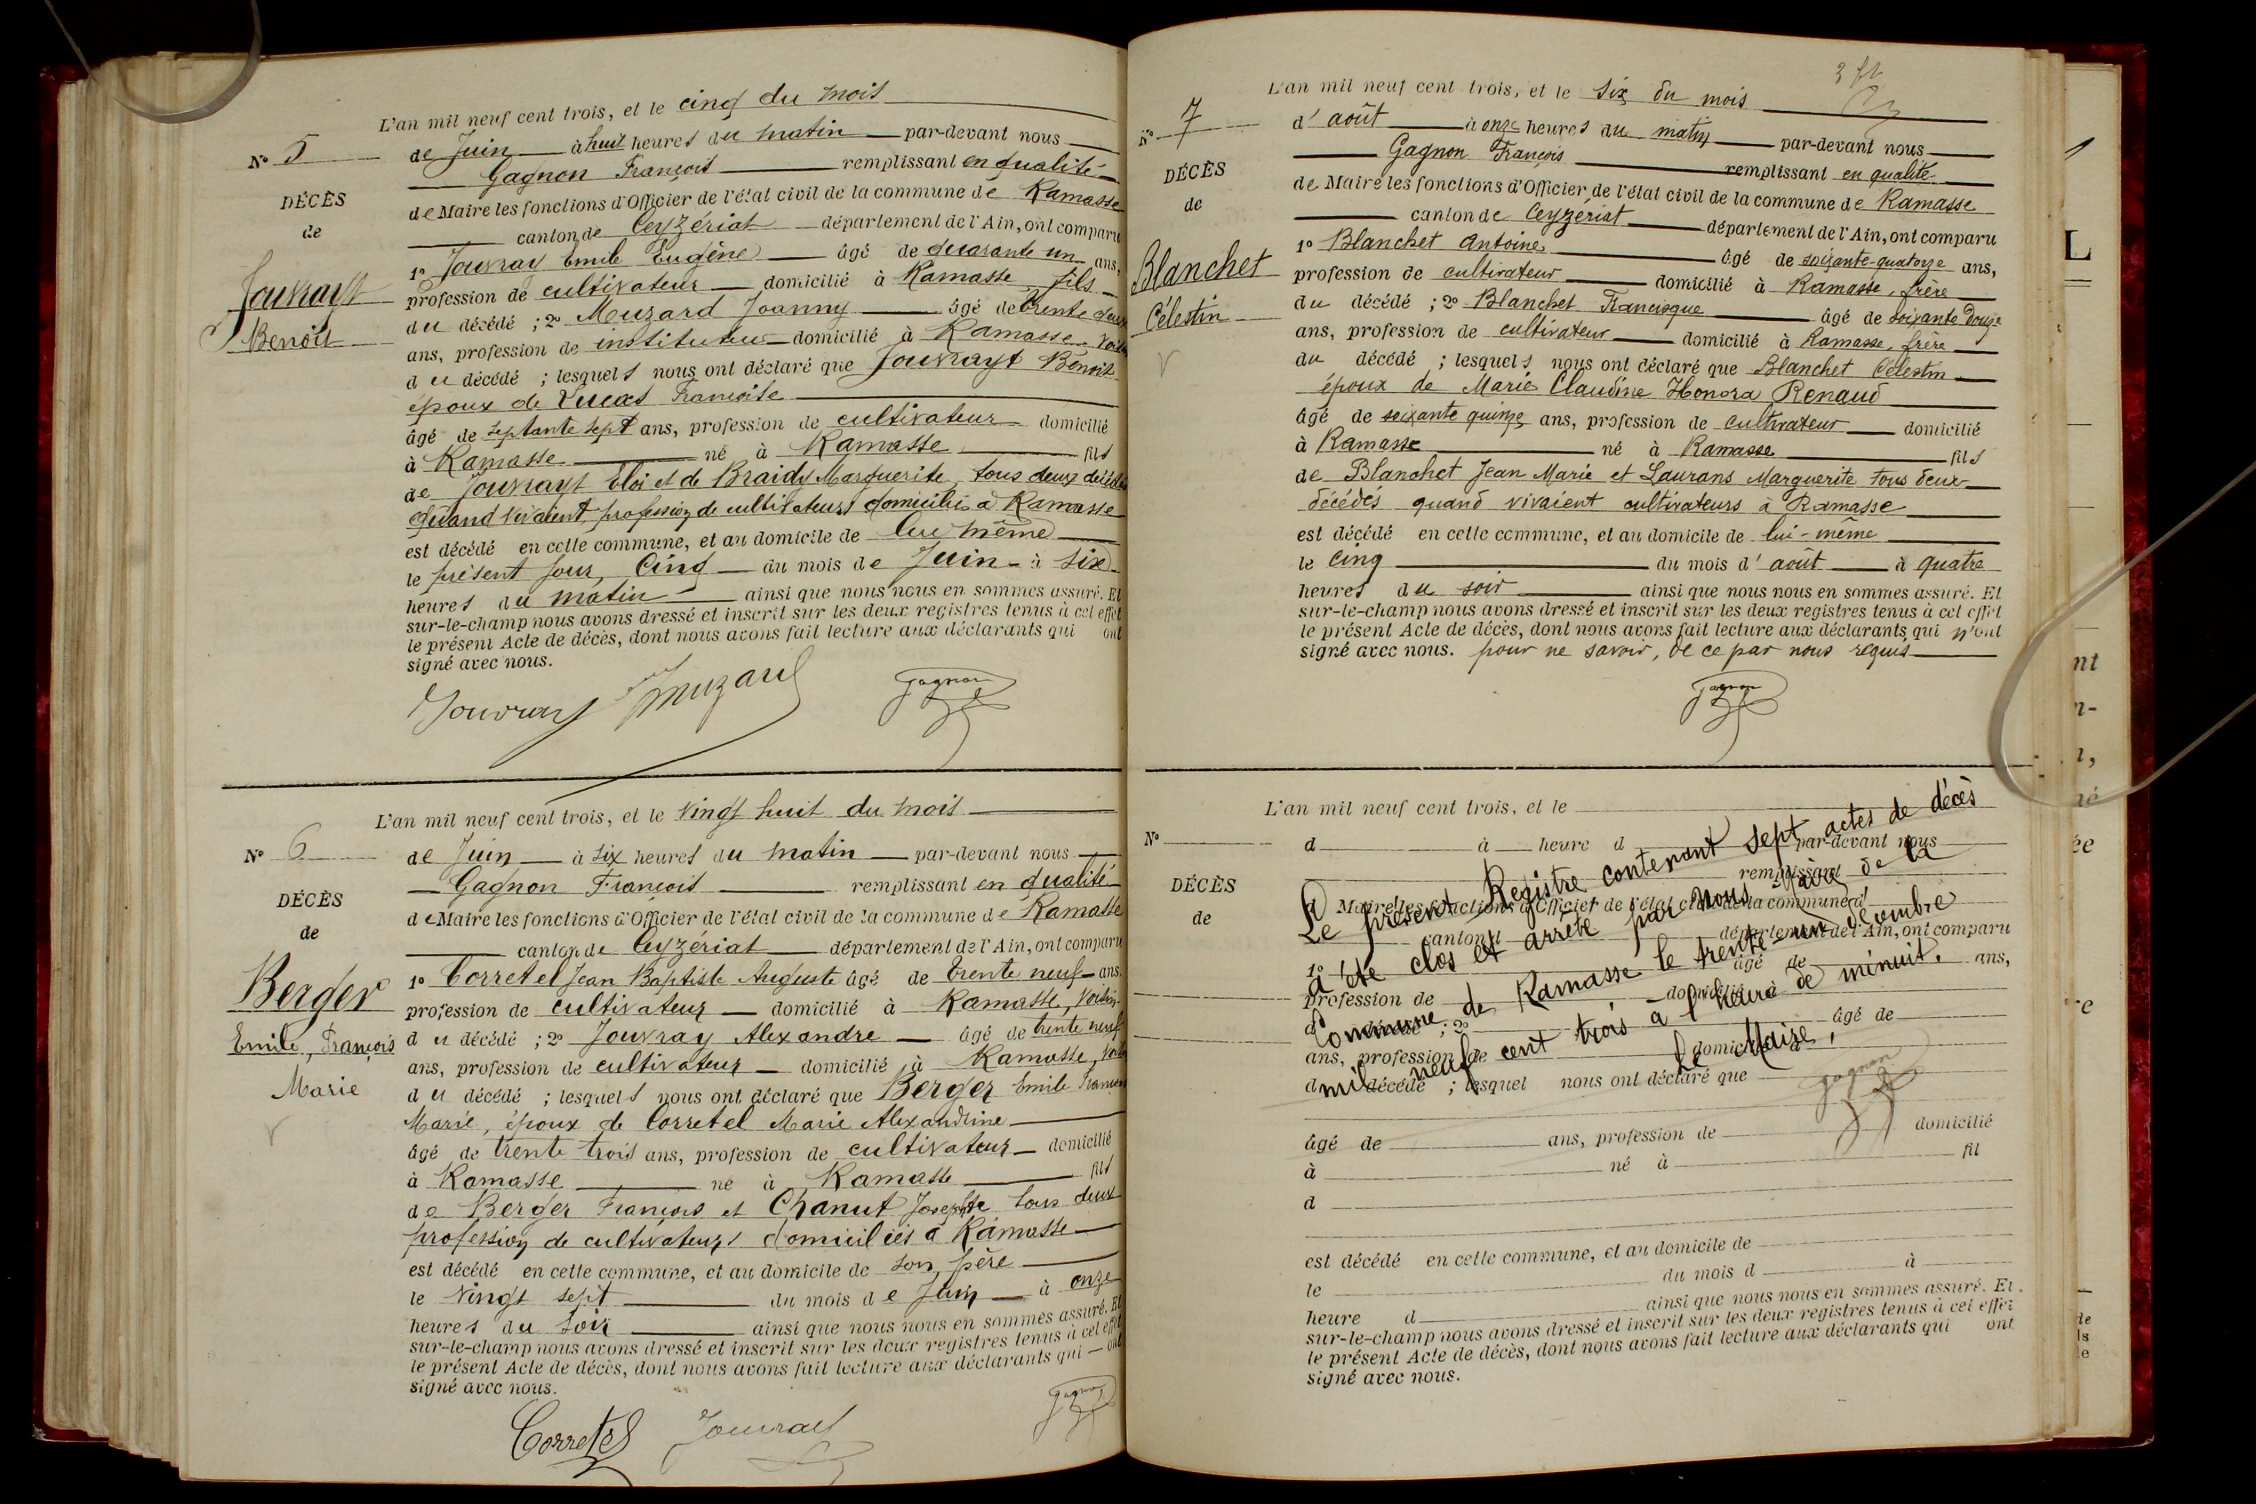 L'an mil neuf cent trois, et le cinq du mois
N° 5
de Juin à huit heures du matin par-devant nous
Gagnon François remplissant en qualité
DÉCÈS
de Maire les fonctions d'Officier de l'état civil de la commune de Ramasse
de
canton de Ceyzériat département de l'Ain, ont comparu
1° Jouvray Emile Eugène âgé de quarante un ans,
Jouvrayt
profession de cultivateur domicilié à Ramasse, fils
Benoit
du décédé ; 2° Muzard Joanny âgé de trente deux
ans, profession de instituteur domicilié à Ramasse, voisin
du décédé ; lesquels nous ont déclaré que Jouvrayt Benoit
époux de Lucas Françoise
âgé de septante sept ans, profession de cultivateur domicilié
à Ramasse né à Ramasse fils
de Jouvrayt Eloi et de Braidy Marguerite, tous deux décédés
quand vivaient profession de cultivateurs domiciliés à Ramasse
est décédé en cette commune, et au domicile de lui même
le présent jour, cinq du mois de Juin à six
heures du matin ainsi que nous nous en sommes assuré. Et
sur-le-champ nous avons dressé et inscrit sur les deux registres tenus à cet effet
le présent Acte de décès, dont nous avons fait lecture aux déclarants qui ont
signé avec nous.
Jouvray Jmuzard Gagnon
L'an mil neuf cent trois, et le vingt huit du mois
N° 6
de Juin à six heures du matin par-devant nous
Gagnon François remplissant en qualité
DÉCÈS
de Maire les fonctions d'Officier de l'état civil de la commune de Ramasse
de
canton de Ceyzériat département de l'Ain, ont comparu
1° Corretel Jean Baptiste Auguste âgé de trente neuf ans,
Berger
profession de cultivateur domicilié à Ramasse, voisin
Emile, François
du décédé ; 2° Jouvray Alexandre âgé de trente neuf
ans, profession de cultivateur domicilié à Ramasse, voisin
Marie
du décédé ; lesquels nous ont déclaré que Berger Emile François
Marie, époux de Corretel Marie Alexandrine
âgé de trente trois ans, profession de cultivateur domicilié
à Ramasse né à Ramasse fils
de Berger François et Chanut Josephte tous deux
profession de cultivateurs domiciliés à Ramasse
est décédé en cette commune, et au domicile de son père
le vingt sept du mois de Juin à onze
heures du soir ainsi que nous nous en sommes assuré. Et
sur-le-champ nous avons dressé et inscrit sur les deux registres tenus à cet effet
le présent Acte de décès, dont nous avons fait lecture aux déclarants qui ont
signé avec nous.
Corretel Jouvray Gagnon
L'an mil neuf cent trois, et le six du mois
N° 7
d'août à onze heures du matin par-devant nous
Gagnon François remplissant en qualité
DÉCÈS
de Maire les fonctions d'Officier de l'état civil de la commune de Ramasse
de
canton de Ceyzériat département de l'Ain, ont comparu
1° Blanchet Antoine âgé de soixante-quatorze ans,
Blanchet
profession de cultivateur domicilié à Ramasse, frère
Célestin
du décédé ; 2° Blanchet Francisque âgé de soixante douze
ans, profession de cultivateur domicilié à Ramasse, frère
du décédé ; lesquels nous ont déclaré que Blanchet Célestin
époux de Marie Claudine Honora Renaud
âgé de soixante quinze ans, profession de cultivateur domicilié
à Ramasse né à Ramasse fils
de Blanchet Jean Marie et Laurans Marguerite tous deux
décédés quand vivaient cultivateurs à Ramasse
est décédé en cette commune, et au domicile de lui-même
le cinq du mois d'août à quatre
heures du soir ainsi que nous nous en sommes assuré. Et
sur-le-champ nous avons dressé et inscrit sur les deux registres tenus à cet effet
le présent Acte de décès, dont nous avons fait lecture aux déclarants qui n'ont
signé avec nous. pour ne savoir, de ce par nous requis
Gagnon
L'an mil neuf cent trois, et le
N°
d à heure d par-devant nous
remplissant
DÉCÈS
d Maire les fonctions d'Officier de l'état civil de la commune d
de
canton d département de l'Ain, ont comparu
1° âgé de ans,
profession de domicilié à
d décédé ; 2° âgé de
ans, profession de domicilié à
d décédé ; lesquel nous ont déclaré que
âgé de ans, profession de domicilié
à né à fil
d
est décédé en cette commune, et au domicile de
le du mois d à
heure d ainsi que nous nous en sommes assuré. Et
sur-le-champ nous avons dressé et inscrit sur les deux registres tenus à cet effet
le présent Acte de décès, dont nous avons fait lecture aux déclarants qui ont
signé avec nous.
Le présent Registre contenant sept actes de décès
a été clos et arrêté par nous Maire de la
Commune de Ramasse le trente-un décembre
mil neuf cent trois à l'heure de minuit.
Le Maire,
Gagnon